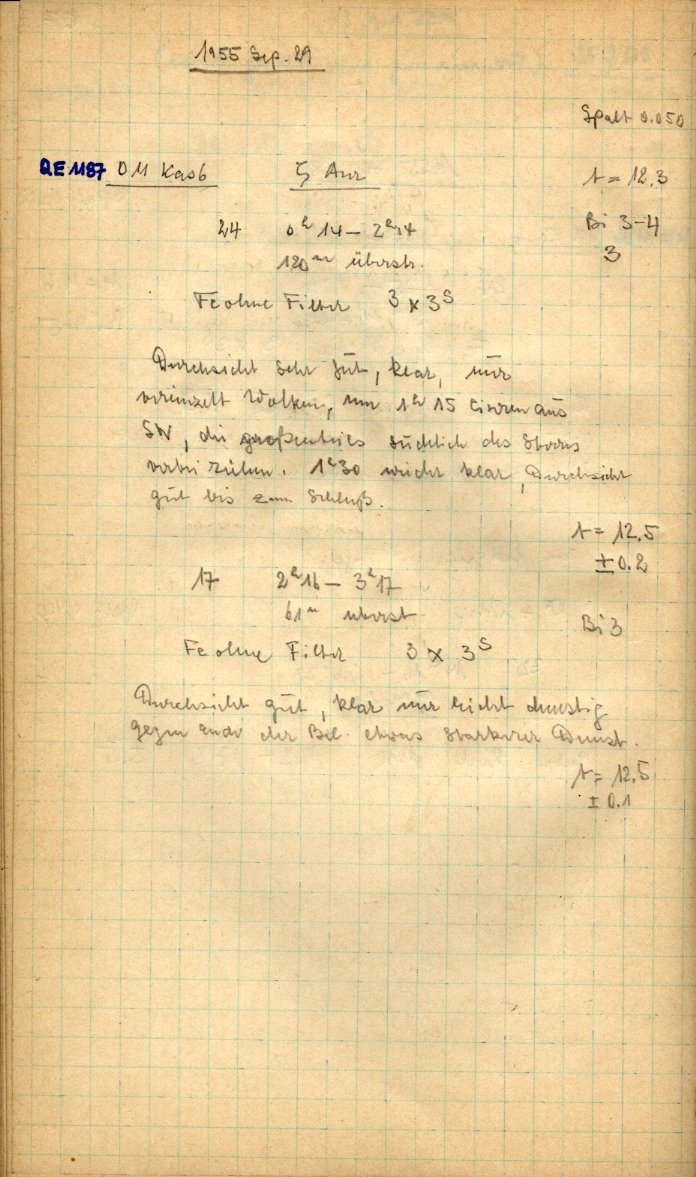 1955 Sep. 29
Spalt 0.050
QE 1187 OM Kas 6 ζ Aur t = 12.3
24 0ʰ14 – 2ʰ14 Bi 3-4
120ᵐ überstr. 3
Fe ohne Filter 3 x 3ˢ
Durchsicht sehr gut, klar, nur
vereinzelt Wolken, um 1ʰ15 Cirren aus
SW, die großenteils südlich des Sterns
vorbei ziehen. 1ʰ30 wieder klar, Durchsicht
gut bis zum Schluß.
t = 12.5
± 0.2
17 2ʰ16 – 3ʰ17
61ᵐ überst Bi 3
Fe ohne Filter 3 x 3ˢ
Durchsicht gut, klar nur leicht dunstig
gegen Ende der Bel. etwas starkerer Dunst.
t = 12.5
± 0.1